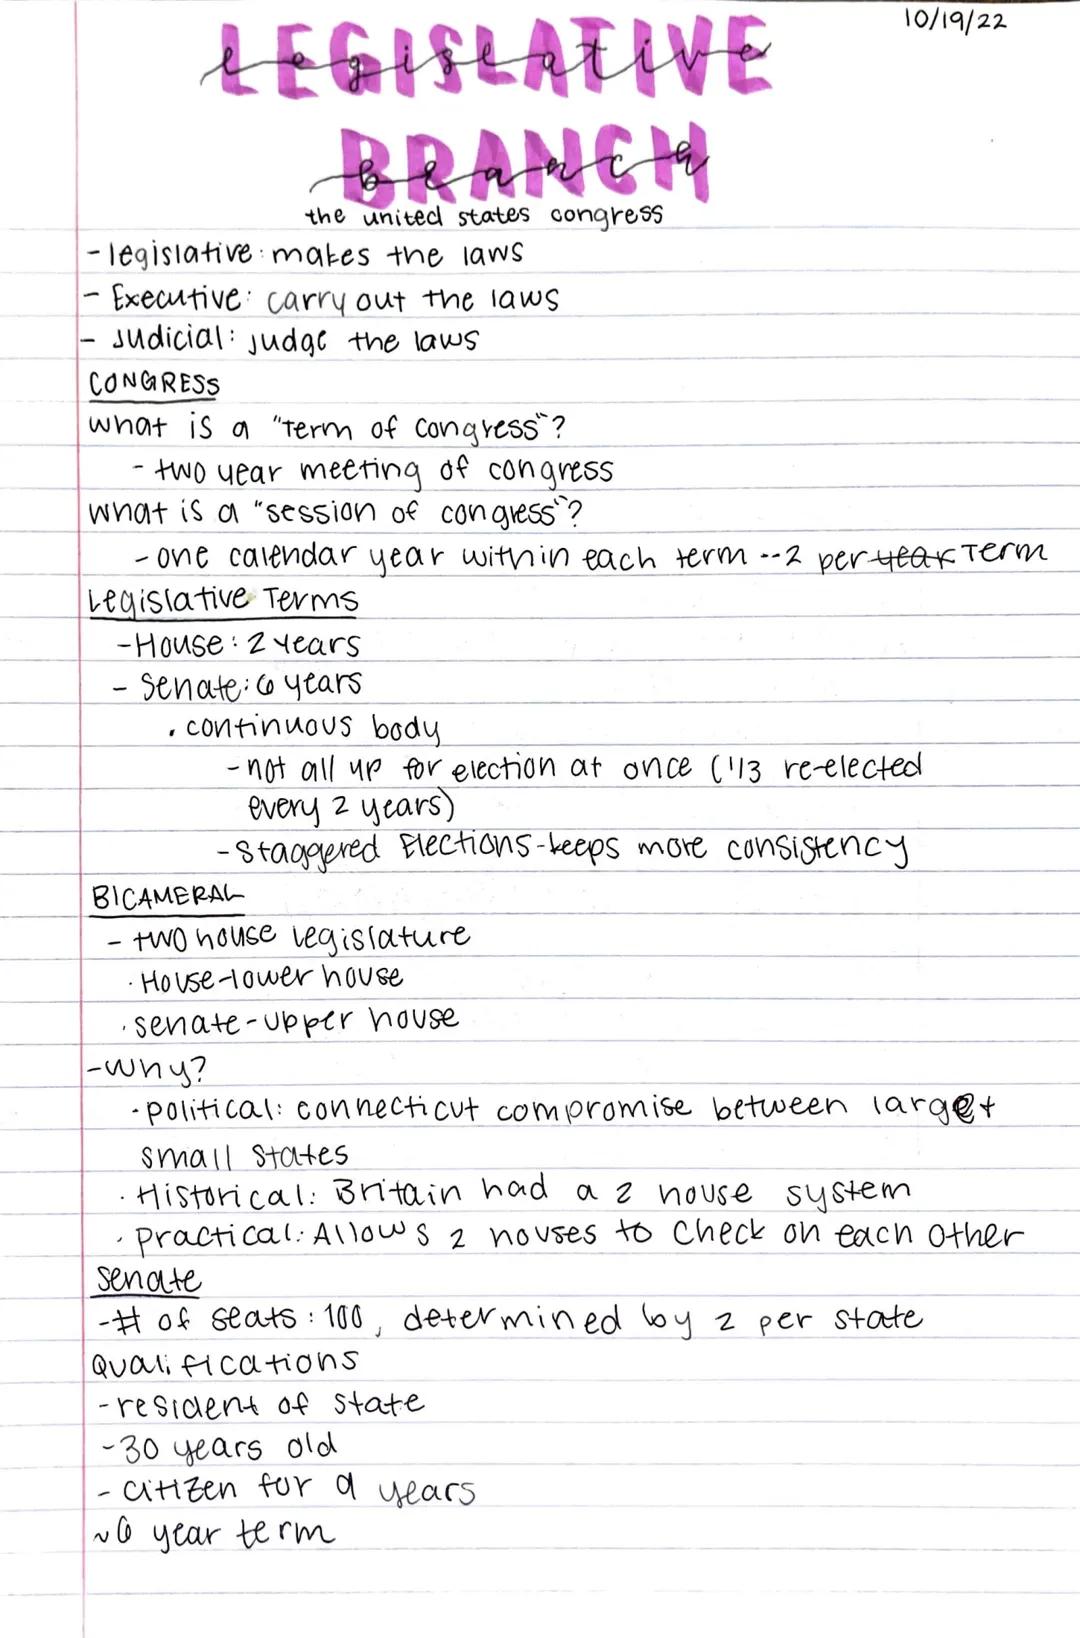 10/19/22
LEGISLATIVE
legislative
BRANCH
branch
the united states congress
- legislative: makes the laws
- Executive: carry out the laws
- Judicial: judge the laws
CONGRESS
what is a "term of congress"?
- two year meeting of congress
what is a "session of congress"?
- one calendar year within each term -- 2 per year Term
Legislative Terms
- House: 2 years
- Senate: 6 years
. continuous body
- not all up for election at once (1/3 re-elected
every 2 years)
- Staggered Elections - keeps more consistency
BICAMERAL
- two house legislature
· House - lower house
· senate - upper house
- Why?
· political: connecticut compromise between large +
small states
· Historical: Britain had a 2 house system
· practical: Allows 2 houses to check on each other
senate
- # of seats: 100, determined by 2 per state
Qualifications
- resident of state
- 30 years old
- citizen for 9 years
~ 6 year term